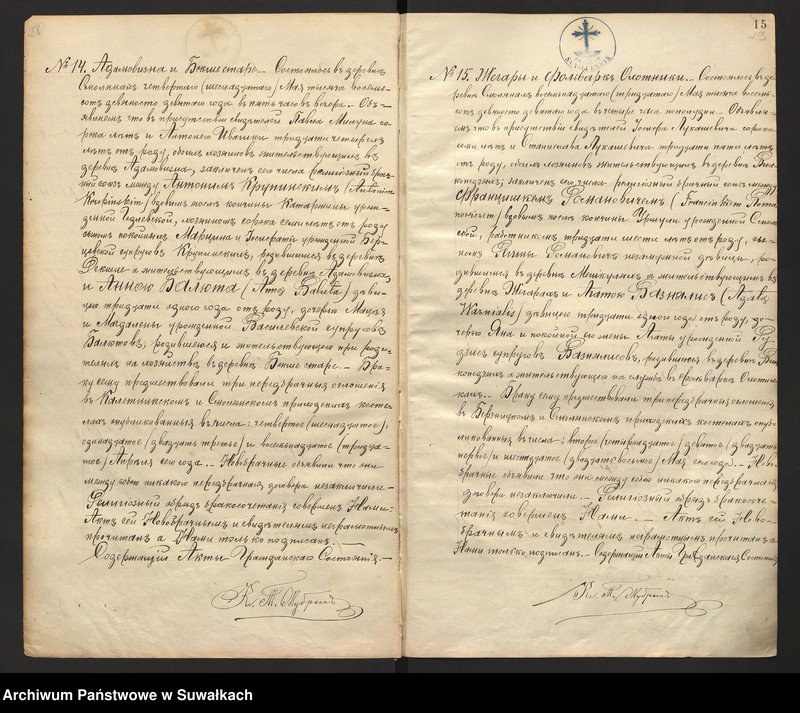 28
№ 14. Адамовизна и Бокше старе. — Состоялось въ деревнѣ
Смолянахъ четвертаго (шестнадцатаго) Мая тысяча восемь-
сотъ девяносто девятаго года въ пять часовъ вечера. — Объ-
являемъ что въ присутствіи свидѣтелей Павла Милуца со-
рока лѣтъ и Антонего тридцати четырехъ
лѣтъ отъ роду, обоихъ хозяевъ жительствующихъ въ
деревнѣ Адамовизна, заключенъ сего числа религіозный брач-
ный союзъ между Антономъ Крупинскимъ (Antonim
Krupinskim) вдовымъ послѣ кончины Катаржины урож-
денной хозяиномъ сорока семи лѣтъ отъ роду
сыномъ покойныхъ Марцина и урожденной
супруговъ Крупинскихъ, родившимся въ деревнѣ
а жительствующимъ въ деревнѣ Адамовизна,
и Анною Балюта (Anną Baluta) дѣви-
цею тридцати одного года отъ роду, дочерью Мацея
и Магдалены урожденной Василевской супруговъ
Балютовъ, родившеюся и жительствующею при роди-
теляхъ на хозяйствѣ въ деревнѣ Бокше старе. — Бра-
ку сему предшествовали три передбрачныя оглашенія
въ Калетникскомъ и Смолянскомъ приходскихъ косте-
лахъ публикованныя въ числа: четвертое (шестнадцатое),
одинадцатое (двадцать третье) и восемнадцатое (тридца-
тое) Апрѣля сего года. — Новобрачные объявили что они
между собою никакого передбрачнаго договора незаключили. —
Религіозный обрядъ бракосочетанія совершенъ Нами. —
Актъ сей Новобрачнымъ и свидѣтелямъ неграмотнымъ
прочитанъ а Нами только подписанъ. —
Содержащій Акты Гражданскаго Состоянія. —
15
№ 15. Жегары и фольваркъ Охотники. — Состоялось въ де-
ревнѣ Смолянахъ восемнадцатаго (тридцатаго) Мая тысяча восемь-
сотъ девяносто девятаго года въ четыре часа пополудни. — Объявля-
емъ что въ присутствіи свидѣтелей Лукашевича сорока
семи лѣтъ и Станислава Лукашевича тридцати пяти лѣтъ
отъ роду, обоихъ хозяевъ жительствующихъ въ деревнѣ
заключенъ сего числа религіозный брачный союзъ между
Францишкомъ Романовичемъ (Franciszkiem Roma-
nowiczem) вдовымъ послѣ кончины Урсули урожденной
работникомъ тридцати шести лѣтъ отъ роду, сы-
номъ Романовичъ незамужной дѣвицы, ро-
дившимся въ деревнѣ Мешкулахъ а жительствующимъ въ
деревнѣ Жегарахъ и Агатою Вазнялисъ (Agatą
Waznialis) дѣвицею тридцати одного года отъ роду, до-
черью Яна и покойной его жены Агаты урожденной
супруговъ Вазнялисовъ, родившеюся въ деревнѣ
а жительствующею на службѣ въ фольваркѣ Охотни-
кахъ. — Браку сему предшествовали три передбрачныя оглашенія
въ Бержникскомъ и Смолянскомъ приходскихъ костелахъ опуб-
ликованныя въ числа: второе (четырнадцатое) девятое (двадцать
первое) и шестнадцатое (двадцать восьмое) Мая сего года. — Ново-
брачные объявили что они между собою никакого передбрачнаго
договора незаключили. — Религіозный обрядъ бракосоче-
танія совершенъ Нами. — Актъ сей Ново-
брачнымъ и свидѣтелямъ неграмотнымъ прочитанъ а
Нами только подписанъ. — Содержащій Акты Гражданскаго Состоянія
Archiwum Państwowe w Suwałkach